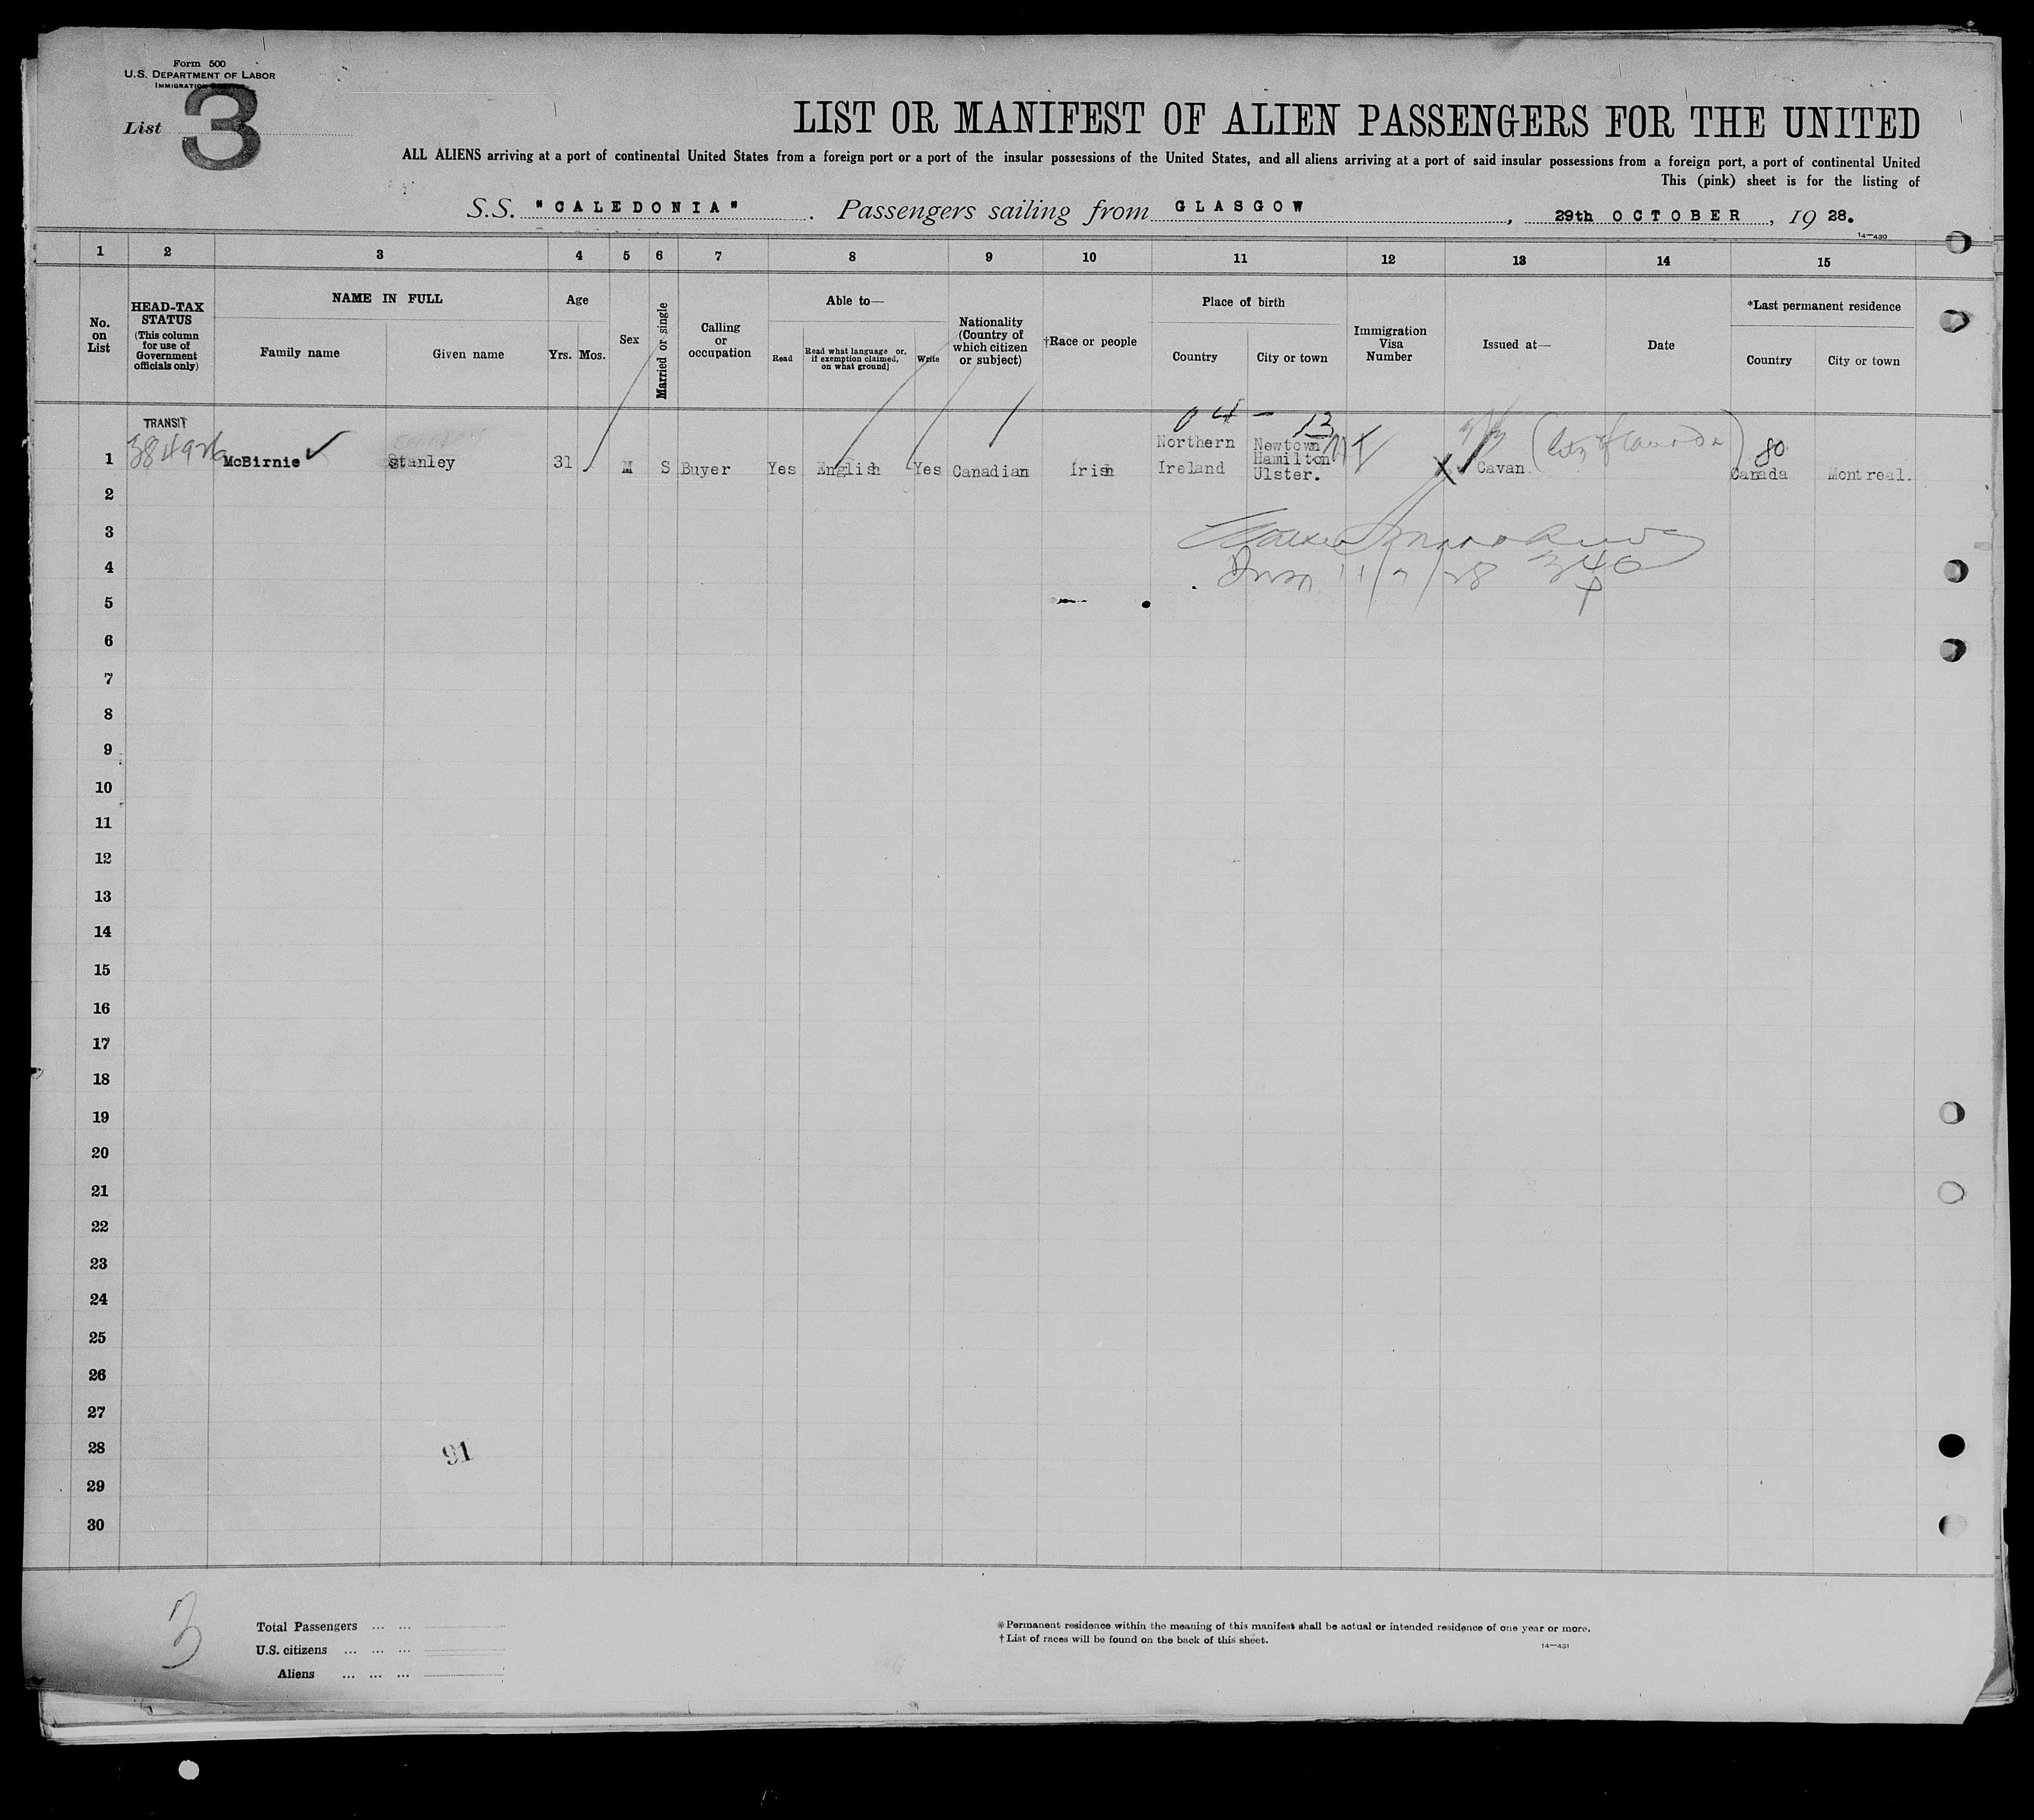 Form 500
U.S. DEPARTMENT OF LABOR
IMMIGRATION
List 3
LIST OR MANIFEST OF ALIEN PASSENGERS FOR THE UNITED
ALL ALIENS arriving at a port of continental United States from a foreign port or a port of the insular possessions of the United States, and all aliens arriving at a port of said insular possessions from a foreign port, a port of continental United
This (pink) sheet is for the listing of
S.S. "CALEDONIA". Passengers sailing from GLASGOW, 29th OCTOBER, 19 28.
14—430
1 2 3 4 5 6 7 8 9 10 11 12 13 14 15
No. on List
HEAD-TAX STATUS
(This column for use of Government officials only)
NAME IN FULL
Family name Given name
Age
Yrs. Mos.
Sex
Married or single
Calling or occupation
Able to—
Read
Read what language or, if exemption claimed, on what ground]
Write
Nationality (Country of which citizen or subject)
†Race or people
Place of birth
Country City or town
Immigration Visa Number
Issued at—
Date
*Last permanent residence
Country City or town
TRANSIT
04 - 13
1 McBirnie ✓ Stanley 31 M S Buyer Yes English Yes Canadian Irish Northern Ireland Newtown Hamilton Ulster. X Cavan 80 Canada Montreal.
2
3
4 11/7/28 340
5
6
7
8
9
10
11
12
13
14
15
16
17
18
19
20
21
22
23
24
25
26
27
28
91
29
30
3
Total Passengers ... ...
U.S. citizens ... ... ...
Aliens ... ... ...
*Permanent residence within the meaning of this manifest shall be actual or intended residence of one year or more.
†List of races will be found on the back of this sheet.
14—431